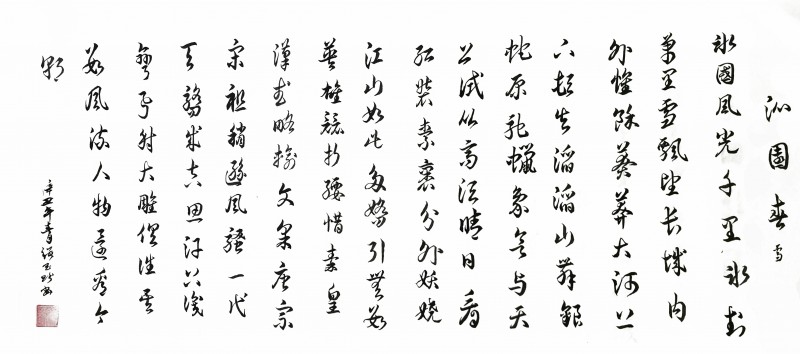 沁園春 雪
北國風光千里冰封
萬里雪飄望長城内
外惟餘莽莽大河上
下頓失滔滔山舞銀
蛇原馳蠟象欲与天
公試比高須晴日看
紅裝素裹分外妖嬈
江山如此多嬌引無數
英雄競折腰惜秦皇
漢武略輸文采唐宗
宋祖稍遜風騷一代
天驕成吉思汗只識
彎弓射大雕俱往矣
數風流人物還看今
朝
辛丑年春